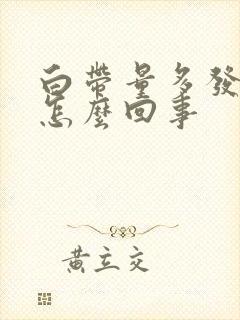 白帶量多發
怎麼回事
黃立交